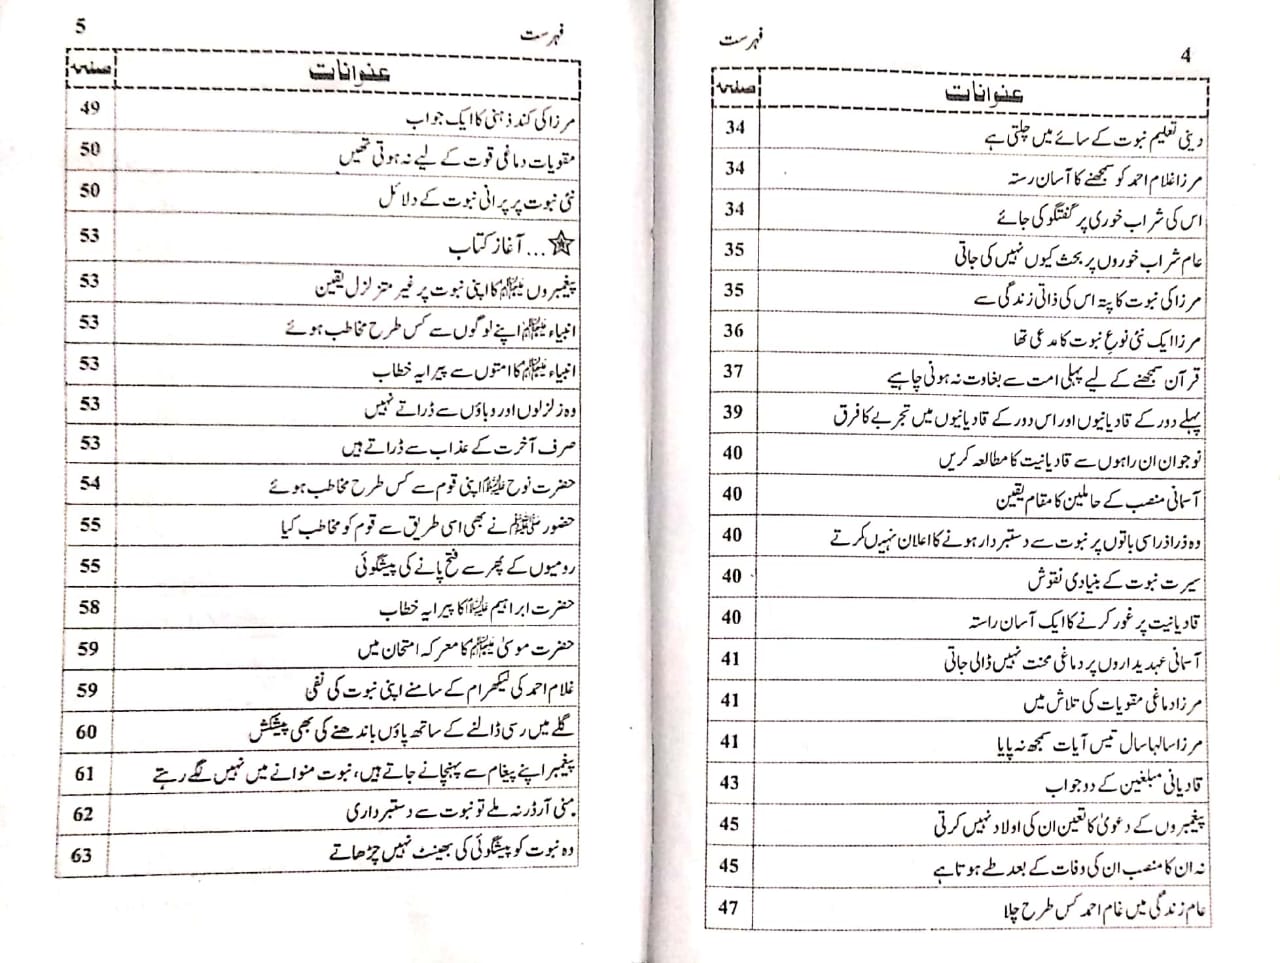 فہرست
4
عنوانات صفحہ
دینی تعلیم نبوت کے سائے میں چلتی ہے 34
مرزا غلام احمد کو سمجھنے کا آسان رستہ 34
اس کی شراب خوری پر گفتگو کی جائے 34
عام شراب خوروں پر بحث کیوں نہیں کی جاتی 35
مرزا کی نبوت کا پتہ اس کی ذاتی زندگی سے 35
مرزا ایک نئی نوعِ نبوت کا مدعی تھا 36
قرآن سمجھنے کے لیے پہلی امت سے بغاوت نہ ہونی چاہیے 37
پہلے دور کے قادیانیوں اور اس دور کے قادیانیوں میں تجربے کا فرق 39
نوجوان ان راہوں سے قادیانیت کا مطالعہ کریں 40
آسمانی منصب کے حاملین کا مقام یقین 40
وہ ذرا ذرا سی باتوں پر نبوت سے دستبردار ہونے کا اعلان نہیں کرتے 40
سیرت نبوت کے بنیادی نقوش 40
قادیانیت پر غور کرنے کا ایک آسان راستہ 40
آسمانی عہدیداروں پر دماغی محنت نہیں ڈالی جاتی 41
مرزا دماغی مقویات کی تلاش میں 41
مرزا سالہا سال تیس آیات سمجھ نہ پایا 41
قادیانی مبلغین کے دو جواب 43
پیغمبروں کے دعویٰ کا تعین ان کی اولاد نہیں کرتی 45
نہ ان کا منصب ان کی وفات کے بعد طے ہوتا ہے 45
عام زندگی میں غلام احمد کس طرح چلا 47
فہرست
5
عنوانات صفحہ
مرزا کی کند ذہنی کا ایک جواب 49
مقویات دماغی قوت کے لیے نہ ہوتی تھیں 50
نئی نبوت پر پرانی نبوت کے دلائل 50
... آغاز کتاب 53
پیغمبروں ﷺ کا اپنی نبوت پر غیر متزلزل یقین 53
انبیاء ﷺ اپنے لوگوں سے کس طرح مخاطب ہوئے 53
انبیاء ﷺ کا امتوں سے پیرایہ خطاب 53
وہ زلزلوں اور وباؤں سے ڈراتے نہیں 53
صرف آخرت کے عذاب سے ڈراتے ہیں 53
حضرت نوح علیہ السلام اپنی قوم سے کس طرح مخاطب ہوئے 54
حضور ﷺ نے بھی اسی طریق سے قوم کو مخاطب کیا 55
رومیوں کے پھر سے فتح پانے کی پیشگوئی 55
حضرت ابراہیم علیہ السلام کا پیرایہ خطاب 58
حضرت موسیٰ ﷺ کا معرکہ امتحان میں 59
غلام احمد کی لیکھرام کے سامنے اپنی نبوت کی نفی 59
گلے میں رسی ڈالنے کے ساتھ پاؤں باندھنے کی بھی پیشکش 60
پیغمبر اپنے پیغام سے پہنچانے جاتے ہیں، نبوت منوانے میں نہیں لگے رہتے 61
منی آرڈر نہ ملے تو نبوت سے دستبرداری 62
وہ نبوت کو پیشگوئی کی بھینٹ نہیں چڑھاتے 63